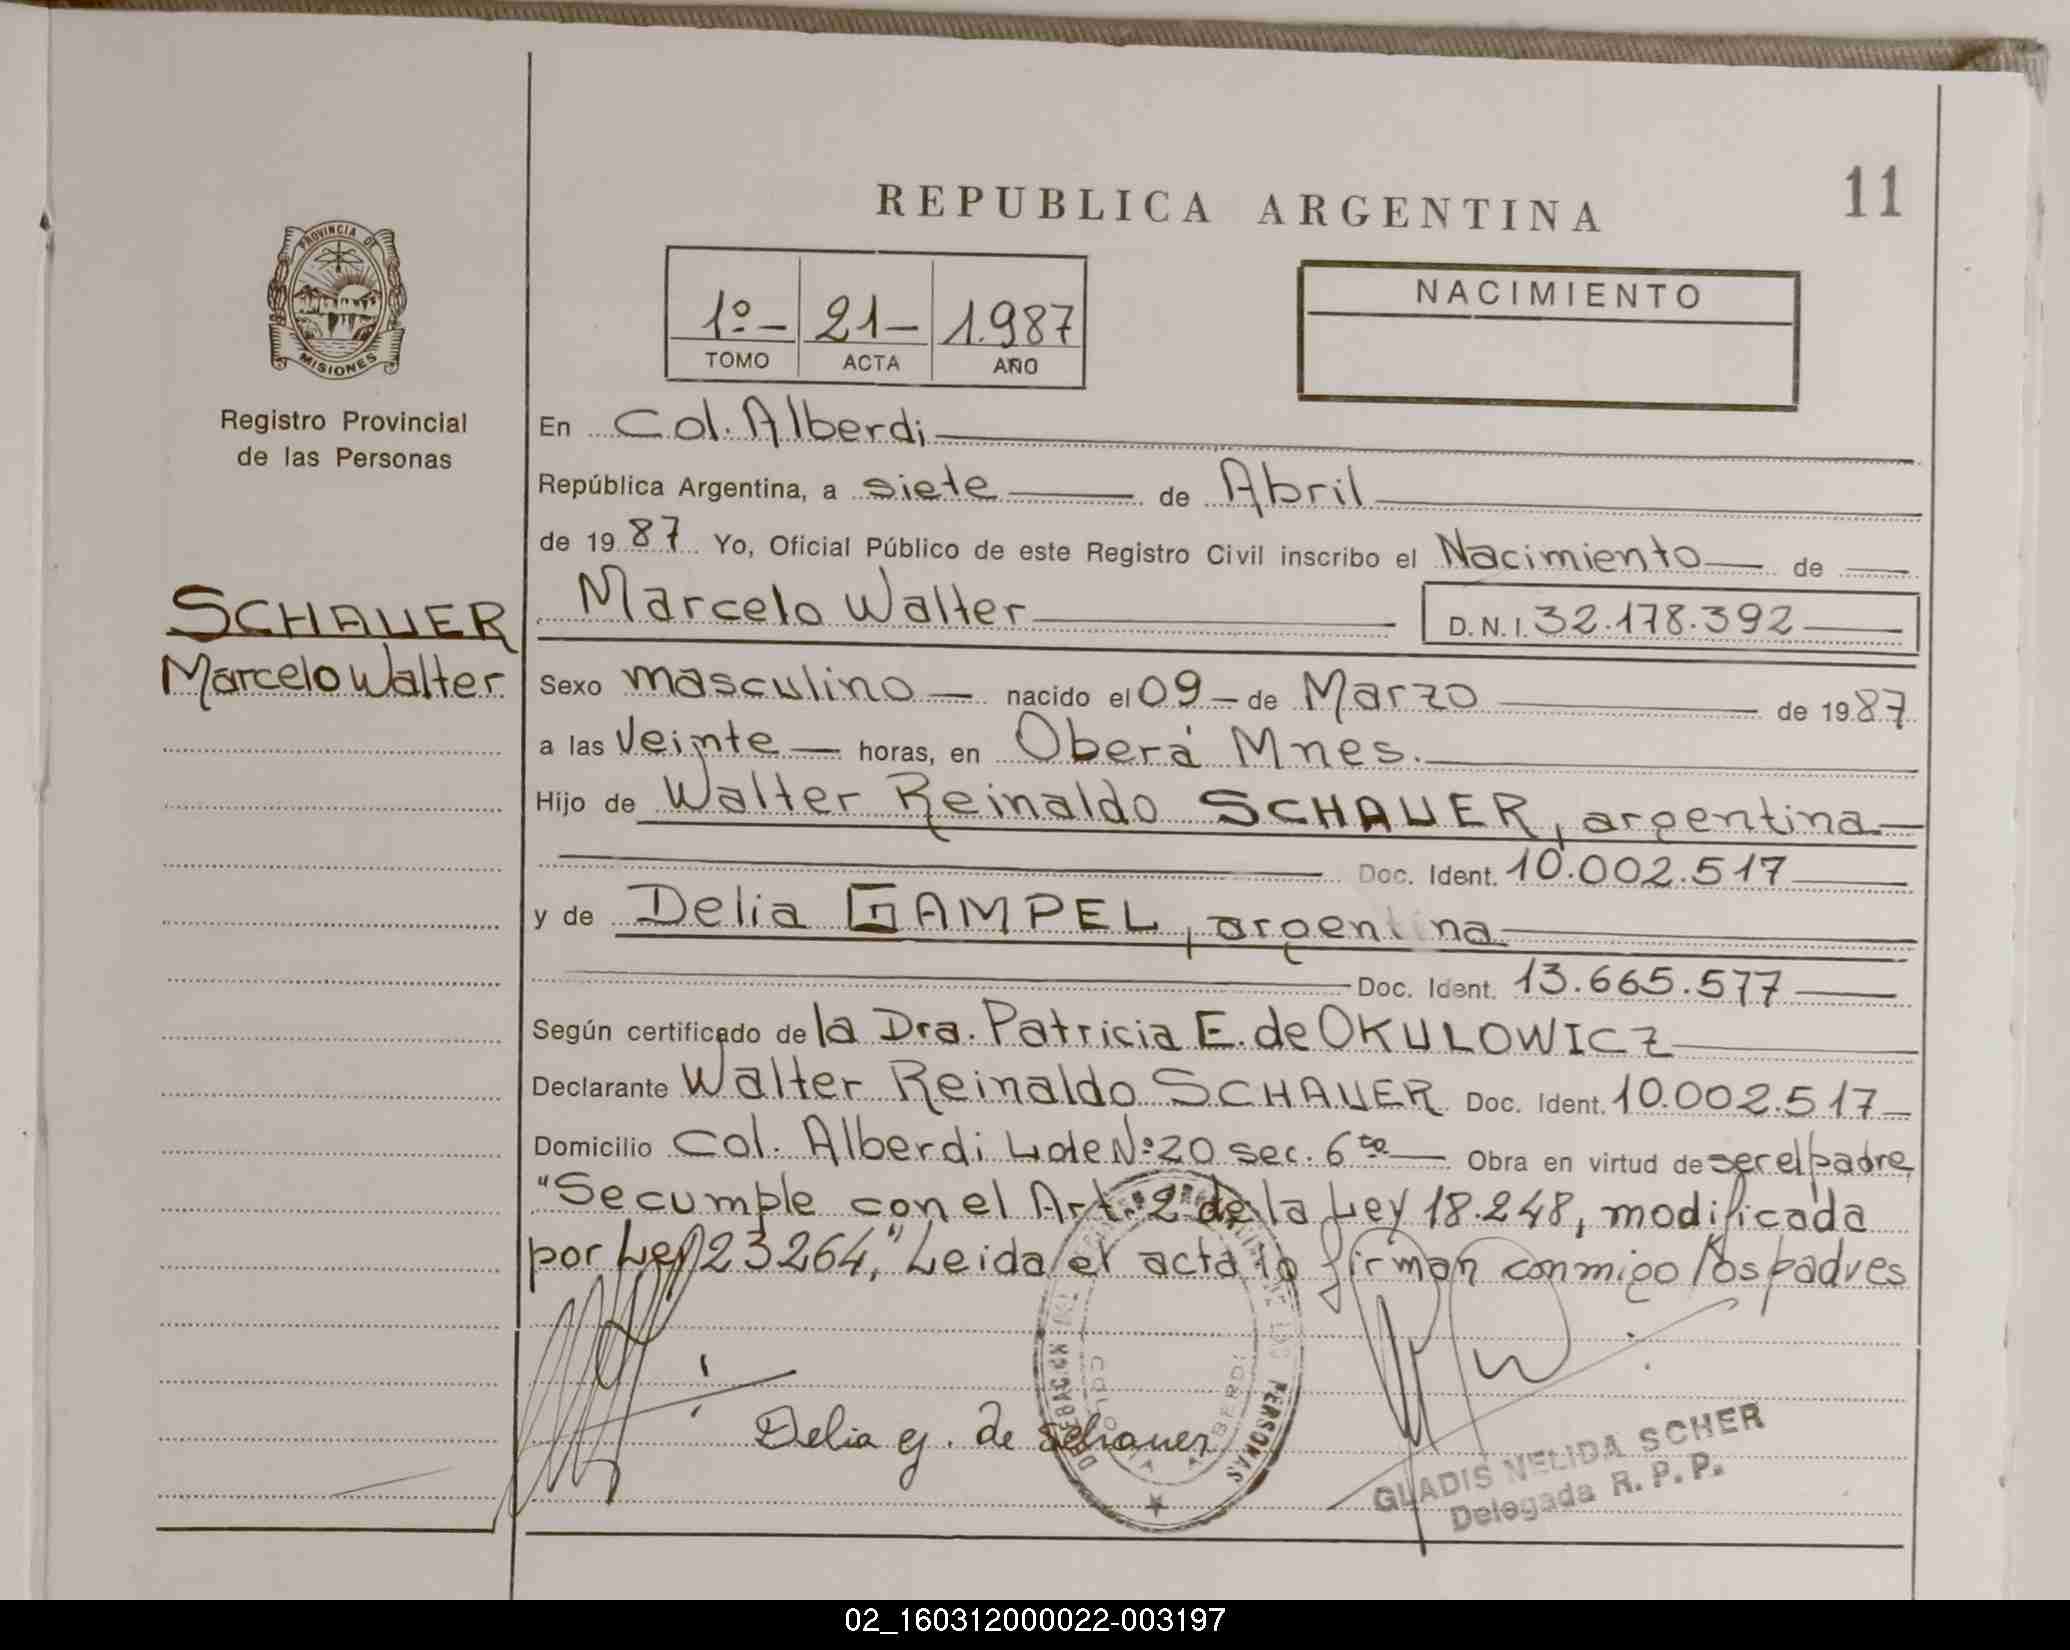 REPUBLICA ARGENTINA
11
PROVINCIA DE
MISIONES
Registro Provincial
de las Personas
1º— 21— 1.987
TOMO ACTA AÑO
NACIMIENTO
En Col. Alberdi
República Argentina, a siete de Abril
de 1987 Yo, Oficial Público de este Registro Civil inscribo el Nacimiento de
SCHAUER
Marcelo Walter
Marcelo Walter D.N.I. 32.178.392
Sexo masculino nacido el 09 de Marzo de 1987
a las veinte horas, en Oberá Mnes.
Hijo de Walter Reinaldo SCHAUER, argentina
Doc. Ident. 10.002.517
y de Delia GAMPEL, argentina
Doc. Ident. 13.665.577
Según certificado de la Dra. Patricia E. de OKULOWICZ
Declarante Walter Reinaldo SCHAUER Doc. Ident. 10.002.517
Domicilio Col. Alberdi Lote Nº 20 sec. 6ta Obra en virtud de ser el padre,
"Se cumple con el Art. 2 de la Ley 18.248, modificada
por Ley 23264," Leida el acta la firman conmigo los padres
Delia G. de Schauer
DELEGACION
PERSONAS
COLONIA ALBERDI
GLADIS NELIDA SCHER
Delegada R. P. P.
02_160312000022-003197